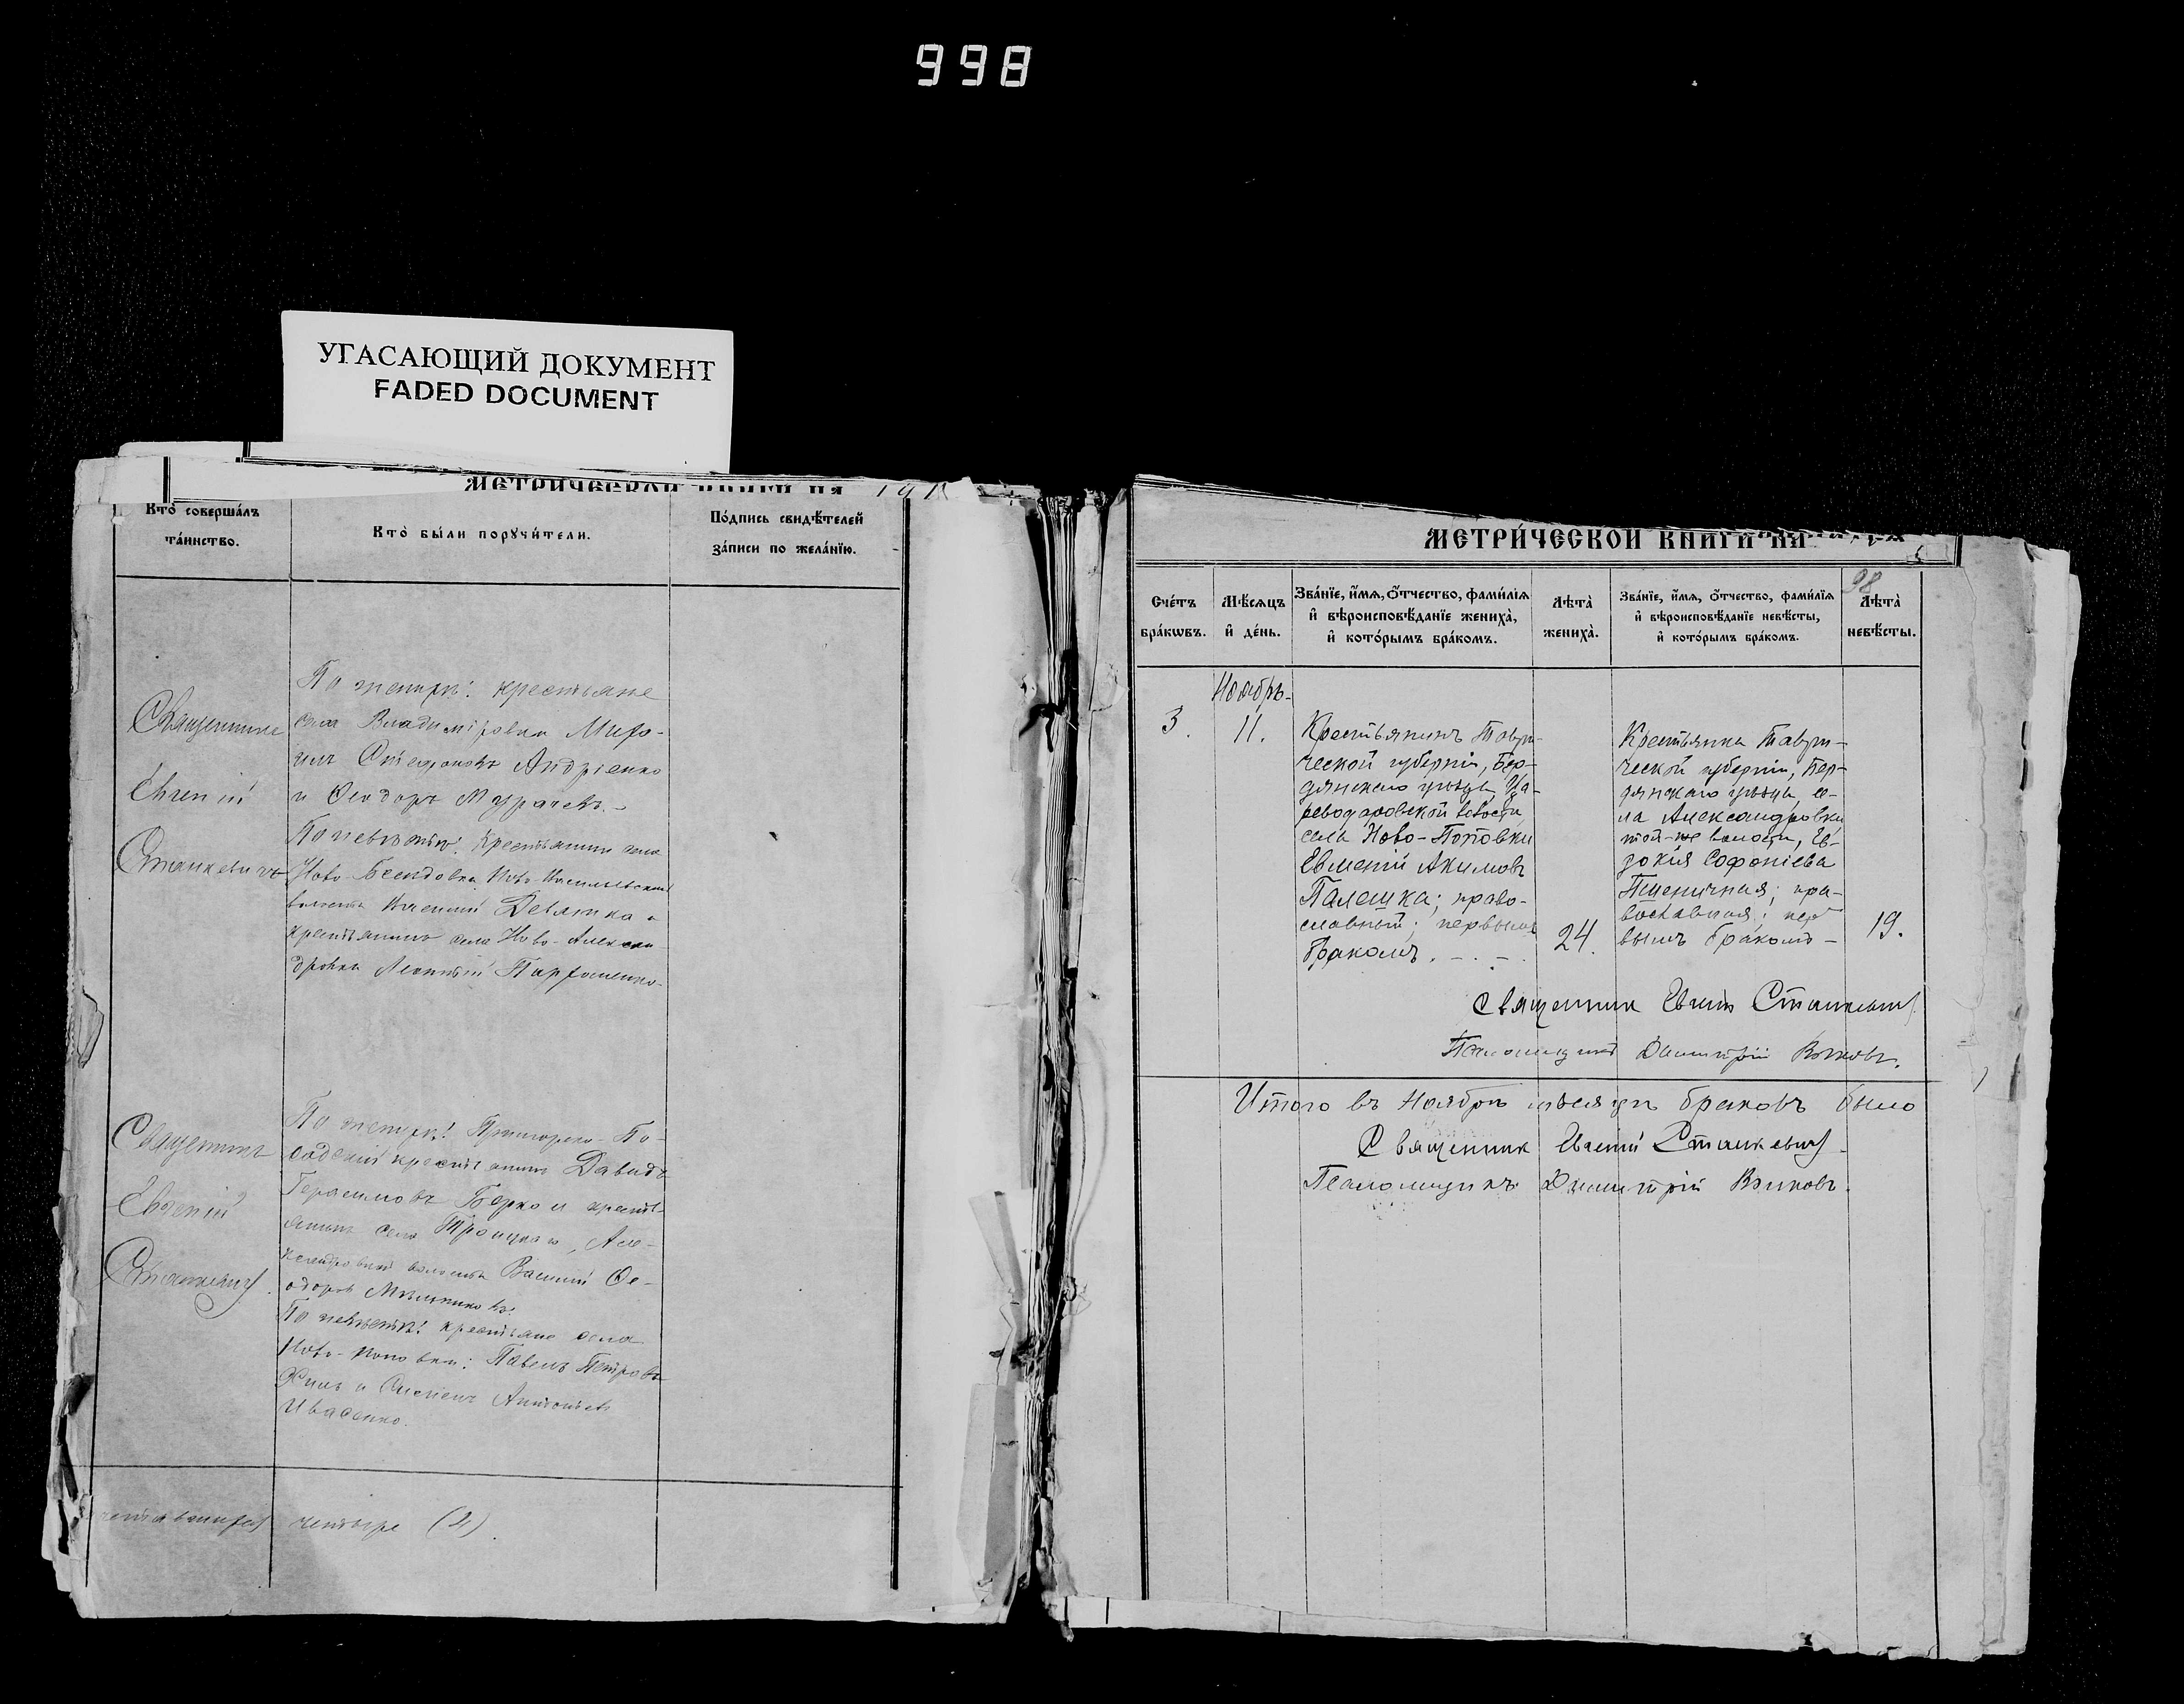 998
УГАСАЮЩИЙ ДОКУМЕНТ
FADED DOCUMENT
МЕТРИЧЕСКОЙ КНИГИ НА 191
Кто̀ соверша́лъ
та́инство.
Кто̀ бы́ли порꙋчи́тели.
По́дпись свидѣ́телей
за́писи по жела́нїю.
Священникъ
Евгеній
Станкевичъ
По женихѣ: крестьяне
села Владиміровки Миро-
Стефановъ Андріенко
и Ѳеодоръ
По невѣстѣ: крестьянинъ села
Ново-
волости Василій Девятка и
крестьянинъ села Ново-Алексан-
дровки Леонтій Пархоменко.
Священникъ
Евгеній
Станкевичъ.
По женихѣ: Приморско-По-
садскій крестьянинъ Давидъ
Герасимовъ Борко и кресть-
янинъ села Троицкаго, Але-
ксандровской волости Василій Ѳе-
одоровъ Мѣльниковъ.
По невѣстѣ: крестьяне села
Ново-Поповки: Павелъ Петровъ
и Антоніевъ
Ивасенко.
четыре (4).
МЕТРИ́ЧЕСКОЙ КНИГИ НА
98
Сче́тъ
бра́кѡвъ.
Мѣ́сѧцъ
и҆ де́нь.
Зва́нїе, и҆́мѧ, ѻ҆́тчество, фами́лїѧ
и҆ вѣроисповѣ́данїе жениха̀,
и҆ кото́рымъ бра́комъ.
Лѣта̀
жениха̀.
Зва́нїе, и҆́мѧ, ѻ҆́тчество, фами́лїѧ
и҆ вѣроисповѣ́данїе невѣ́сты,
и҆ кото́рымъ бра́комъ.
Лѣта̀
невѣ́сты.
Ноябрь.
3.
11.
Крестьянинъ Таври-
ческой губерніи, Бер-
дянскаго уѣзда, Ца-
реводаровской волости,
села Ново-Поповки
Евменій Акимовъ
Палешка; право-
славный; первымъ
бракомъ.
24.
Крестьянка Таври-
ческой губерніи, Бер-
дянскаго уѣзда, се-
ла Александровки
той-же волости, Ев-
докія Софоніева
Пшеничная; пра-
вославная; пер-
вымъ бракомъ
19.
Священникъ Евгеній Станкевичъ.
Псаломщикъ Димитрій Волковъ.
Итого въ Ноябрѣ мѣсяцѣ браковъ было
Священникъ Евгеній Станкевичъ.
Псаломщикъ Димитрій Волковъ.